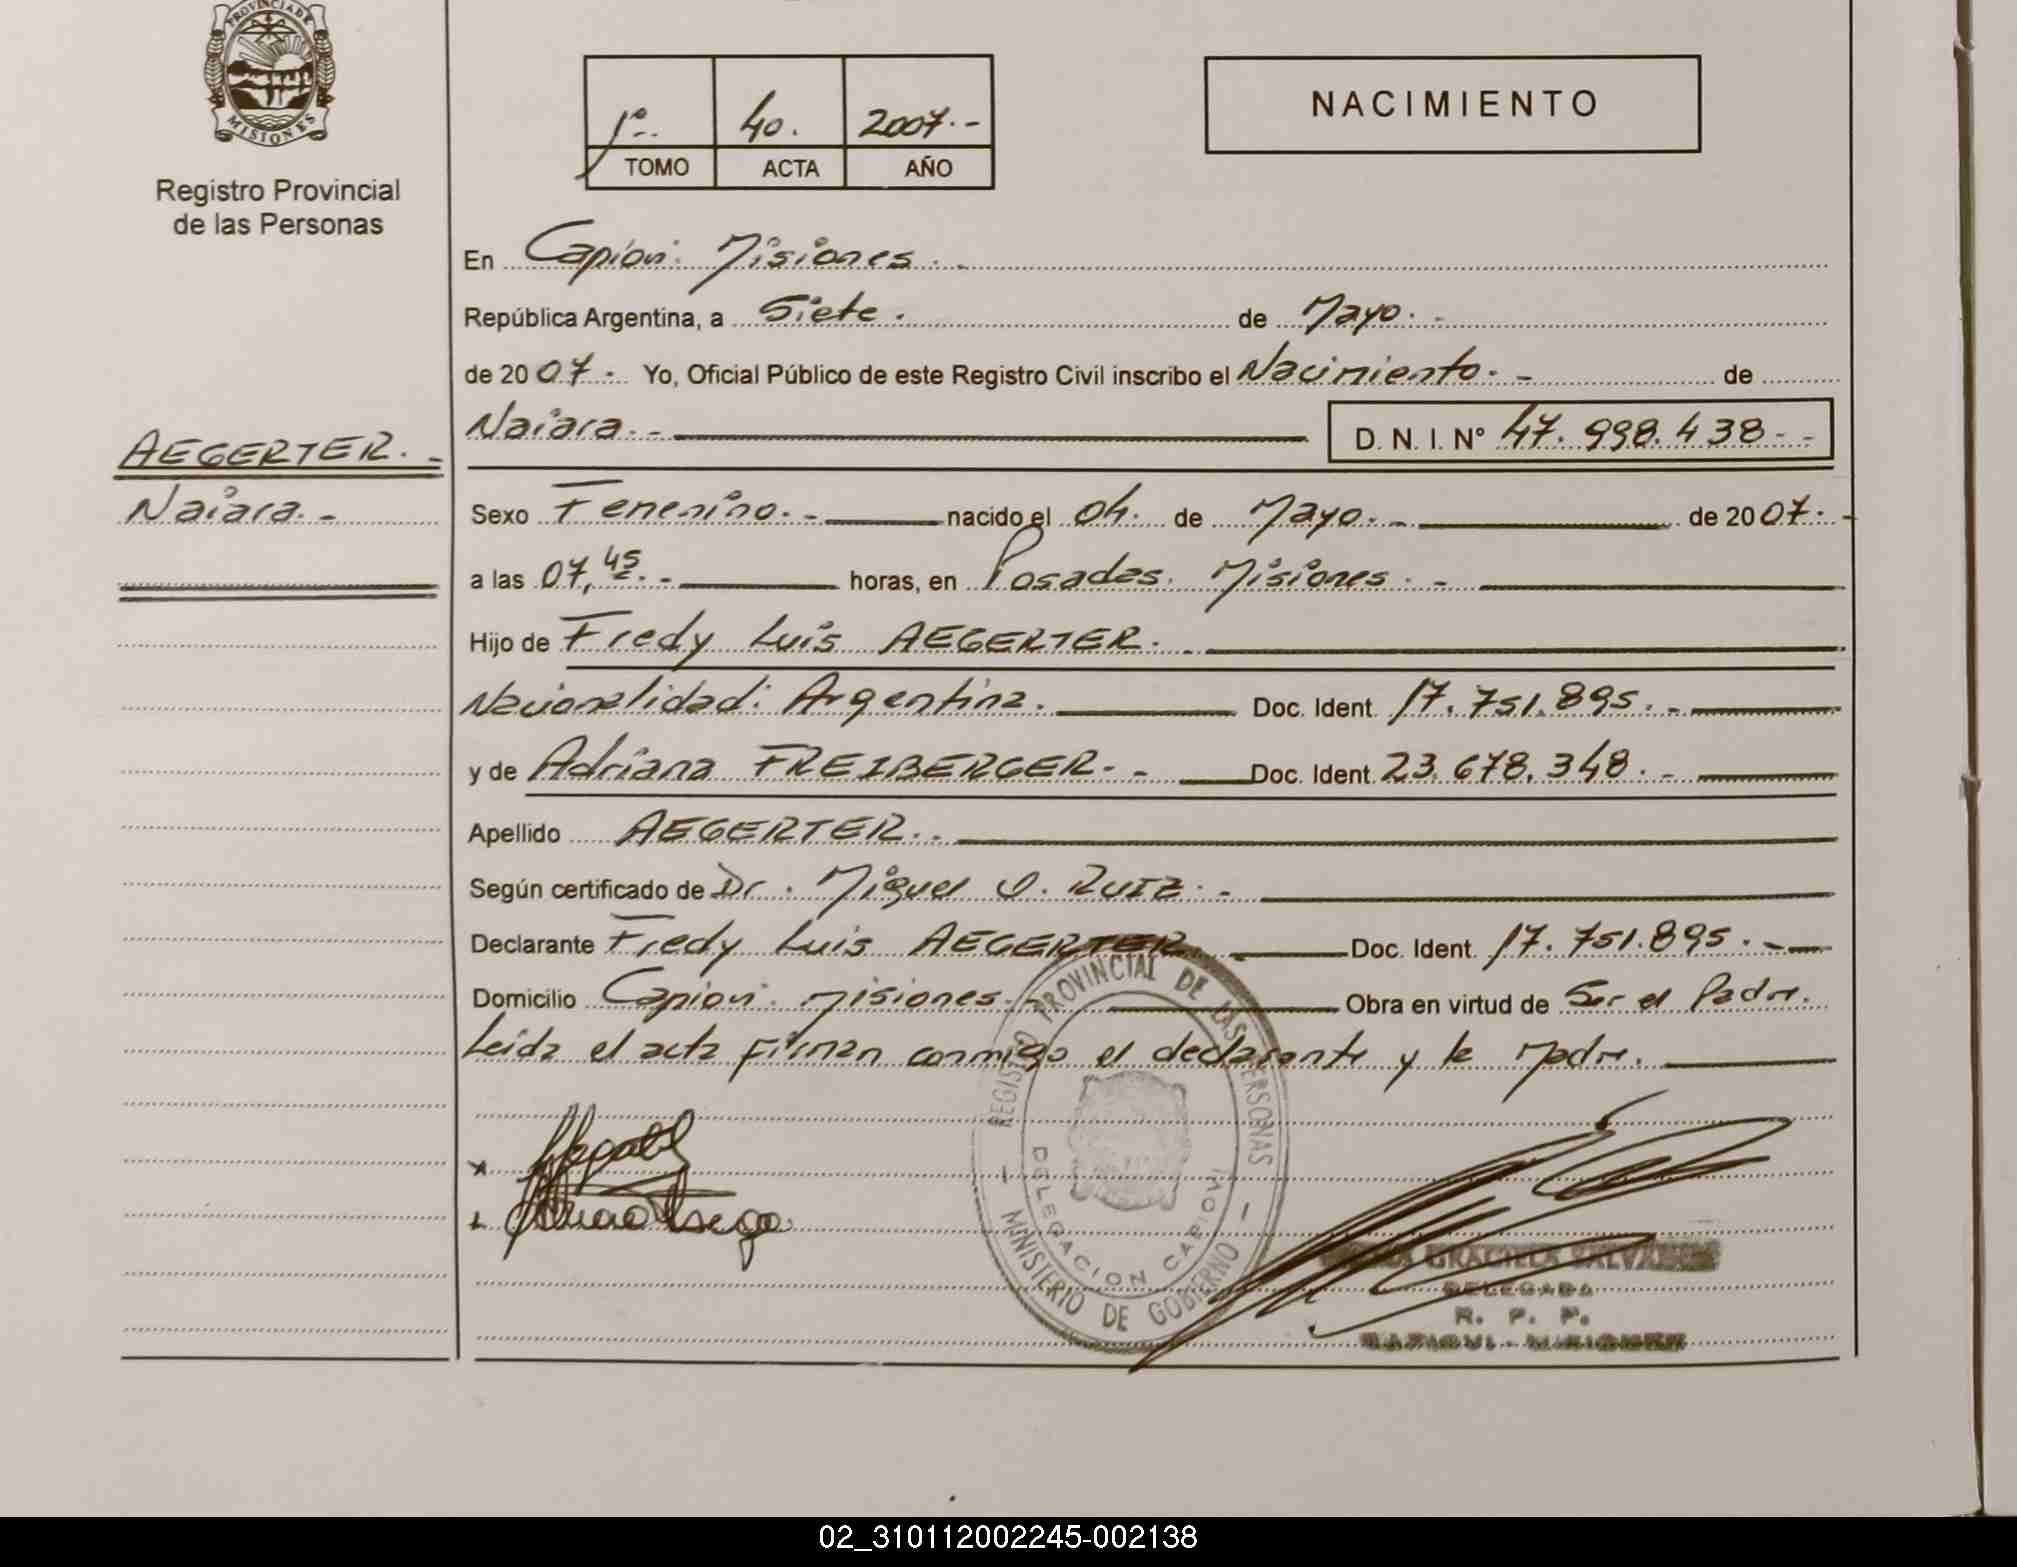 PROVINCIA DE
MISIONES
Registro Provincial
de las Personas
1º.. 40. 2007.-
TOMO ACTA AÑO
NACIMIENTO
En Capioví. Misiones.-
República Argentina, a Siete. de Mayo.-
de 2007.- Yo, Oficial Público de este Registro Civil inscribo el Nacimiento.- de
Naiara.- D. N. I. Nº 47.998.438.-
AEGERTER.-
Naiara.-
Sexo Femenino.- nacido el 04. de Mayo.- de 2007.-
a las 07,45.- horas, en Posadas. Misiones.-
Hijo de Fredy Luis AEGERTER.-
Nacionalidad: Argentina. Doc. Ident. 17.751.895.-
y de Adriana FREIBERGER.- Doc. Ident. 23.678.348.-
Apellido AEGERTER..
Según certificado de Dr. Miguel O. RUIZ.-
Declarante Fredy Luis AEGERTER. Doc. Ident. 17.751.895.-
Domicilio Capioví. Misiones.- Obra en virtud de Ser el Padre.
Leída el acta firman conmigo el declarante y la Madre.
REGISTRO PROVINCIAL DE LAS PERSONAS
DELEGACION CAPIOVI
MINISTERIO DE GOBIERNO
GRACIELA
DELEGADA
R. P. P.
CAPIOVI - MISIONES
02_310112002245-002138